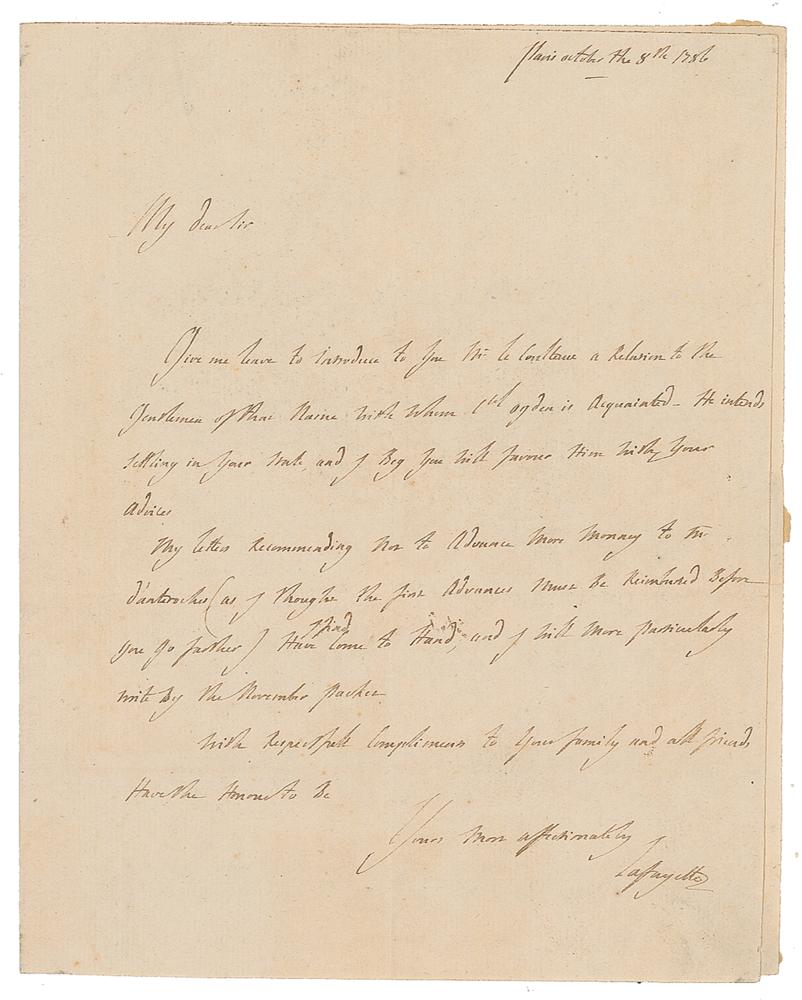 Paris october the 8th 1786
My dear Sir
Give me leave to introduce to You Mr. le Couteulx a Relation to the
Gentlemen of that Name with Whom Cel ogden is Acquainted - He intends
Settling in Your State, and I Beg You will favour Him with Your
Advices
My letters Recommending Not to Advance More Monney to Mr.
d'anteroches (as I thought the first Advances Must Be Reimbursed Before
I find
you go farther) Have Come to Hand, and I will More particularly
write By the November packet
With Respectfull Compliments to Your family and all friends
Have the Honour to Be
Yours Most affectionately
Lafayette